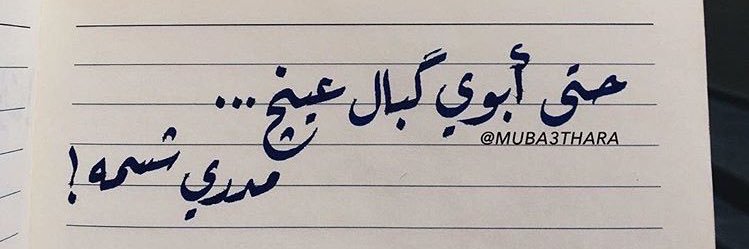 حتى أبوي گبال عينچ...
@MUBA3THARA
مدري شسمه!